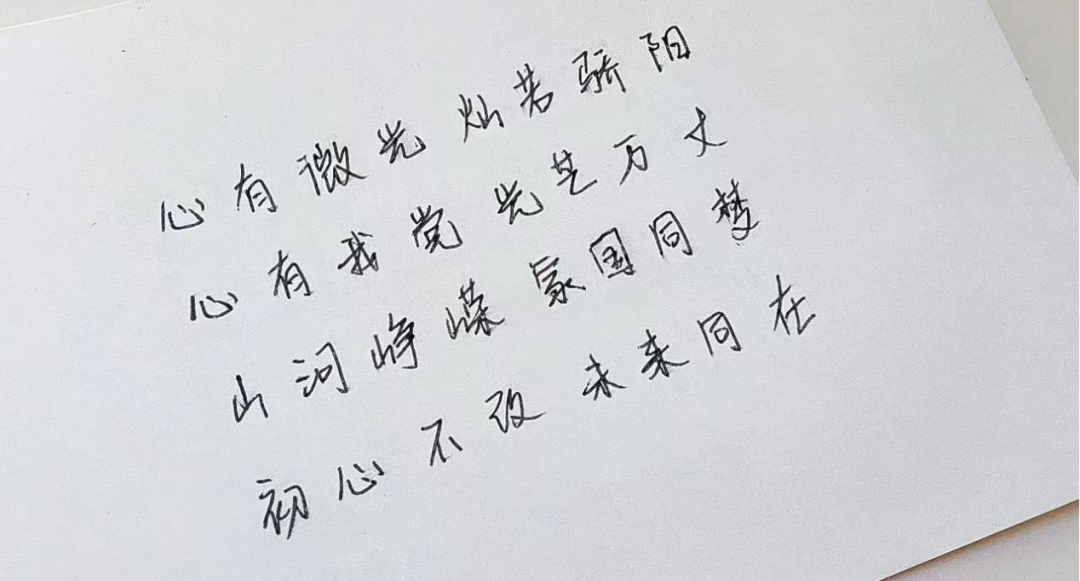 心有微光 灿若骄阳
心有我党 光芒万丈
山河峥嵘 家国同梦
初心不改 未来同在